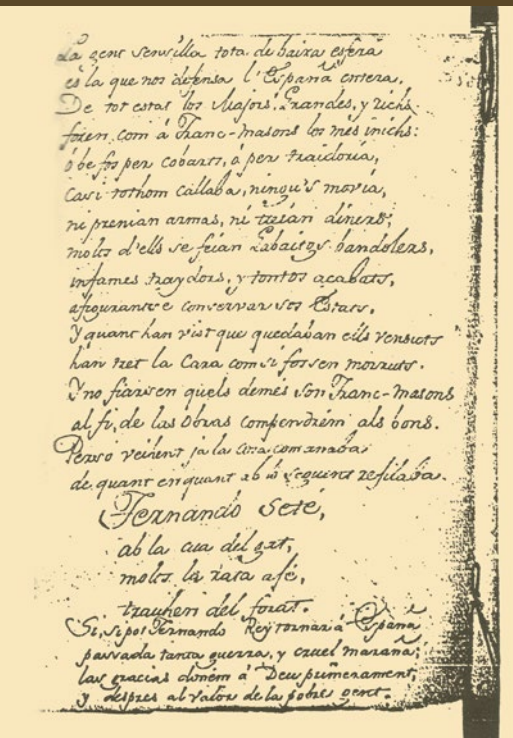 La gent sensilla tota de baixa esfera
es la que nos defensa l'España entera.
De tot estat los Majors, Grandes, y richs
foren com á Franc-masons los més inichs:
ó be fos per cobarts, ó per traidoría,
casi tothom callaba, ningu's movía,
ni prenian armas, ni treian diners;
molts d'ells se feian Gabaitxs bandolers,
infames traydors, y tontos acabats,
afigurantse conservar sos Estats.
Y quant han vist que quedaban ells vensuts
han tret la Cara com si fossen morruts.
Y no fiarsen quels demés son Franc-masons
al fi, de las obras compendrém als bons.
Perso veient ja la cosa com anaba
de quant en quant ab lo seguent refilaba.
Fernando Seté,
ab la cua del gat,
molts la rata afé,
trauhen del forat.
Si, si pot Fernando Rey tornar á España
passada tanta guerra, y cruel maraña;
las gracias donem á Deu primerament,
y despres al valor de la pobre gent.